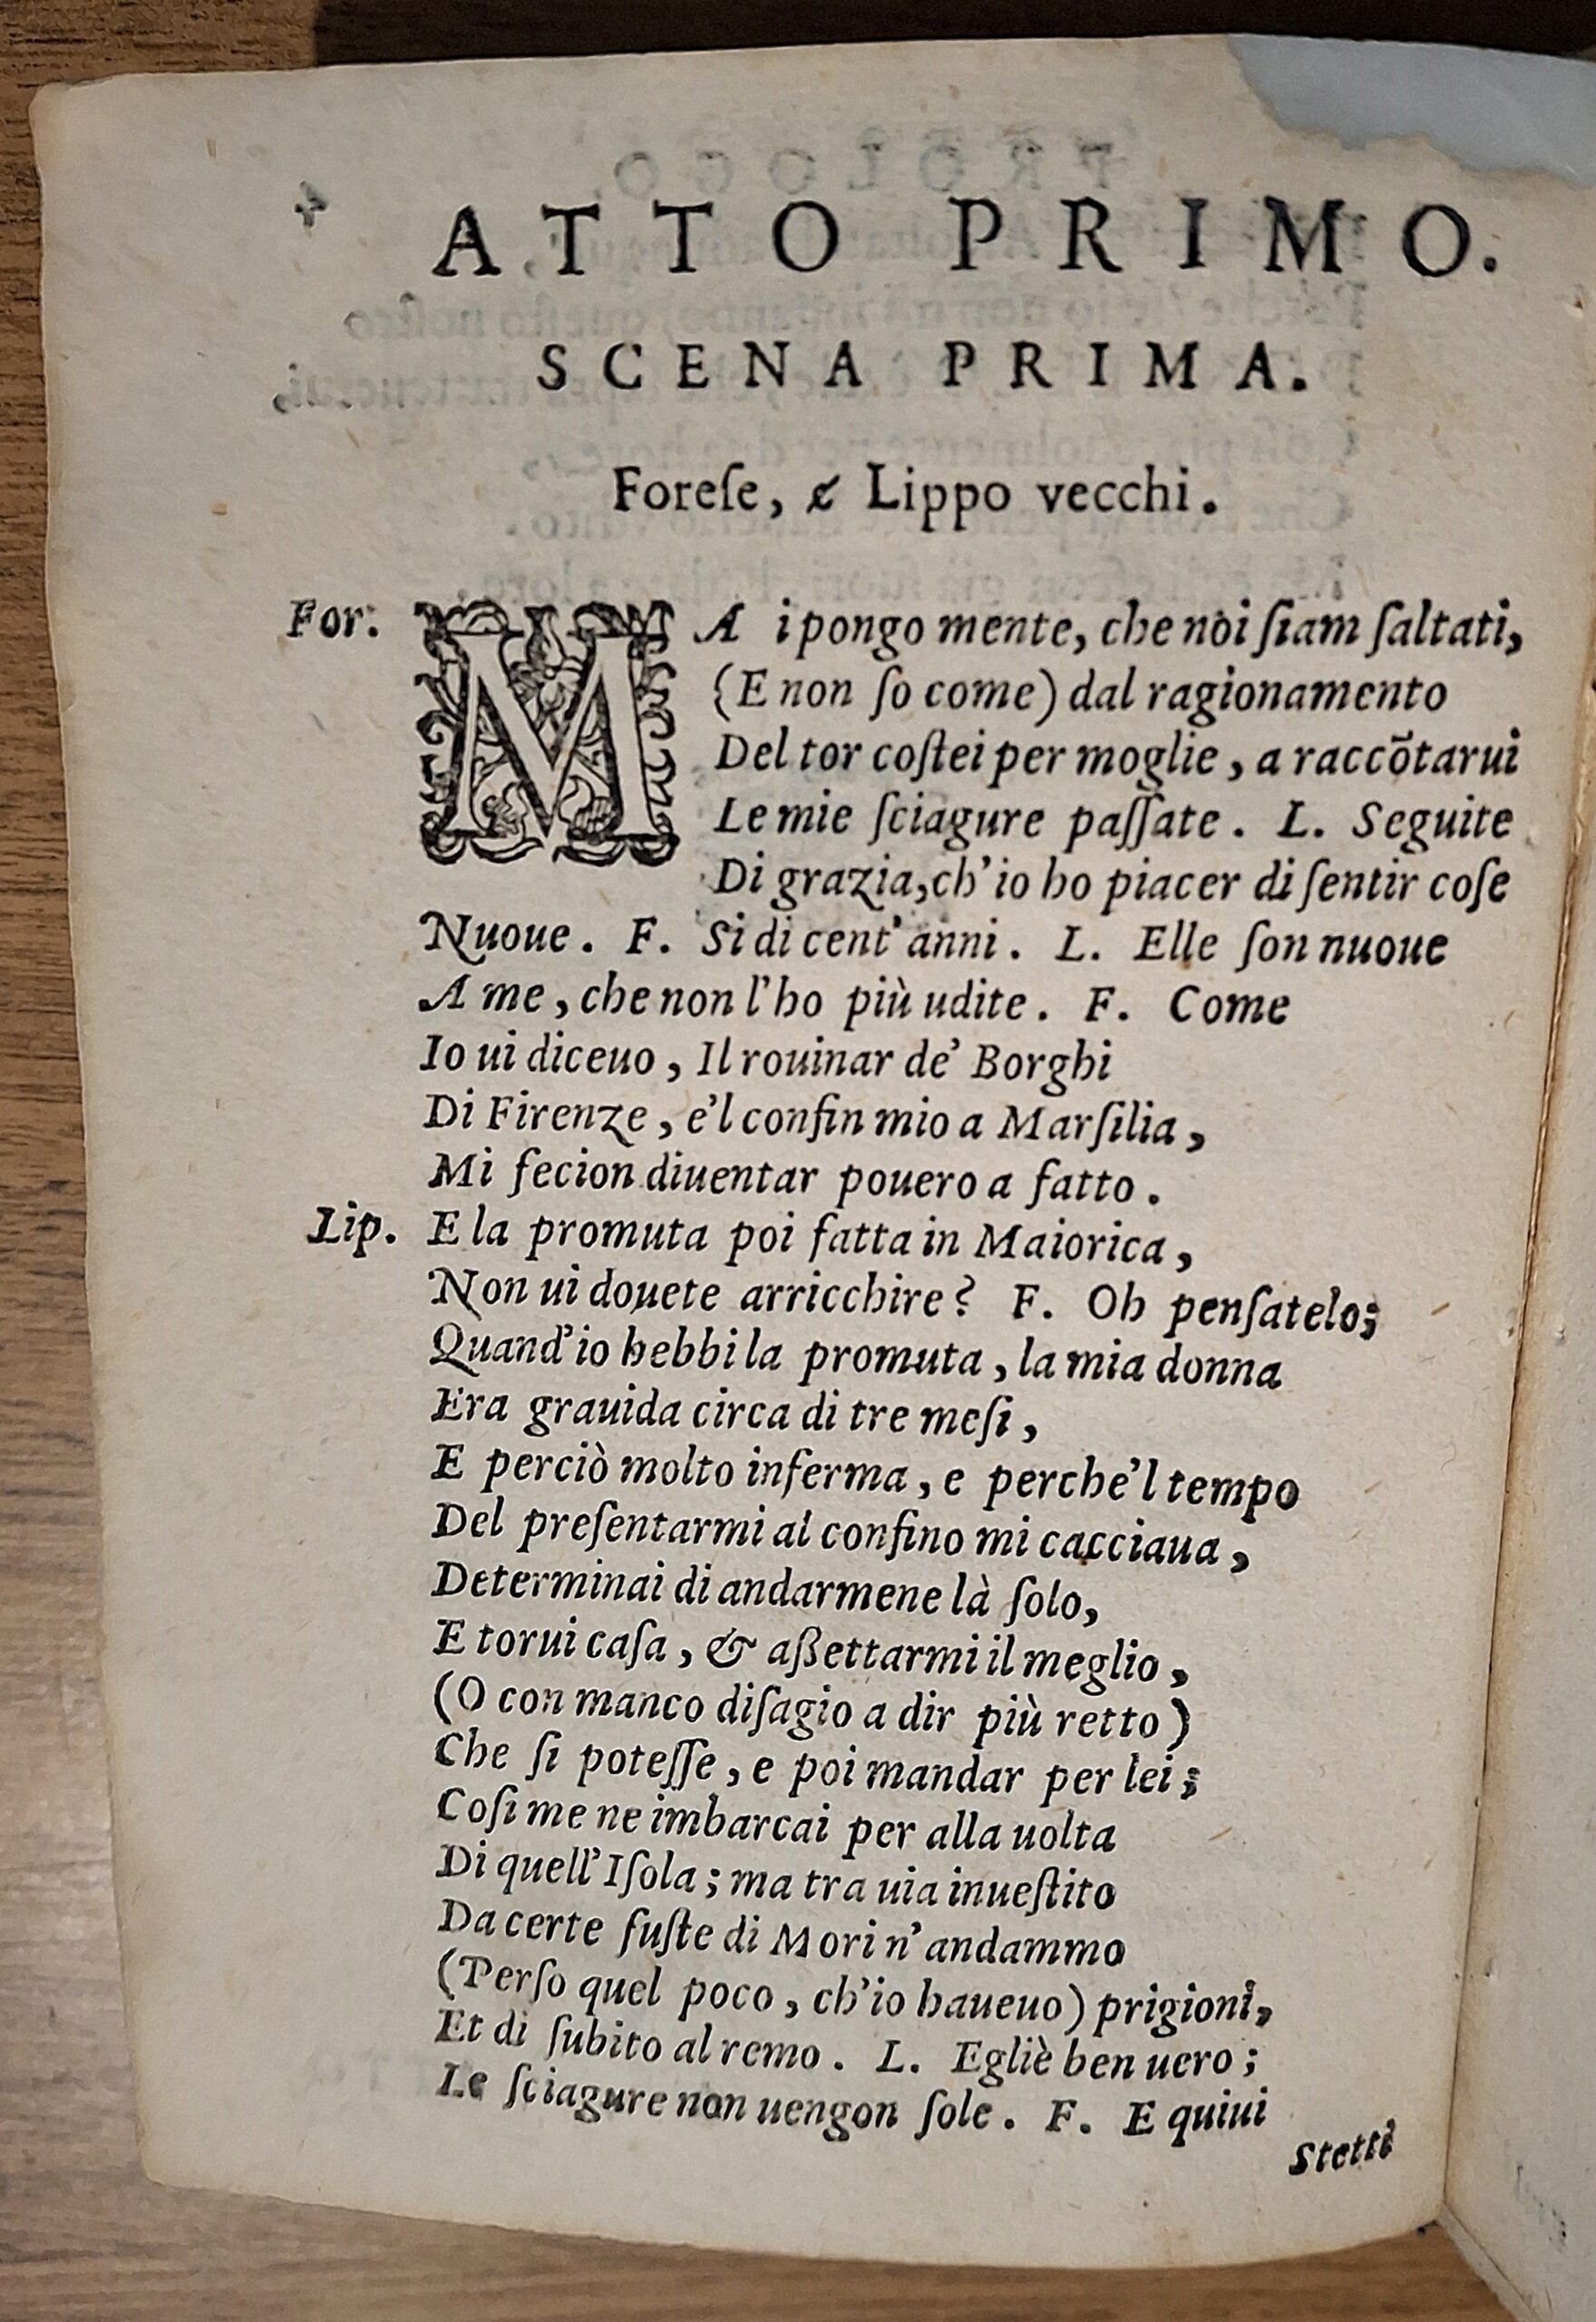 ATTO PRIMO.
SCENA PRIMA.
Foreſe, & Lippo vecchi.
For. MA i pongo mente, che noi ſiam ſaltati,
(E non ſo come) dal ragionamento
Del tor coſtei per moglie, a raccõtarui
Le mie ſciagure paſſate. L. Seguite
Di grazia, ch'io ho piacer di ſentir coſe
Nuoue. F. Si di cent'anni. L. Elle ſon nuoue
A me, che non l'ho più udite. F. Come
Io ui diceuo, Il rouinar de' Borghi
Di Firenze, e'l confin mio a Marſilia,
Mi fecion diuentar pouero a fatto.
Lip. E la promuta poi fatta in Maiorica,
Non ui douete arricchire? F. Oh penſatelo;
Quand'io hebbi la promuta, la mia donna
Era grauida circa di tre meſi,
E perciò molto inferma, e perche'l tempo
Del preſentarmi al confino mi cacciaua,
Determinai di andarmene là ſolo,
E torui caſa, & aßettarmi il meglio,
(O con manco diſagio a dir più retto)
Che ſi poteſſe, e poi mandar per lei;
Coſi me ne imbarcai per alla uolta
Di quell'Iſola; ma tra uia inueſtito
Da certe fuſte di Mori n'andammo
(Perſo quel poco, ch'io haueuo) prigioni,
Et di ſubito al remo. L. Egliè ben uero;
Le ſciagure non uengon ſole. F. E quiui
Stetti